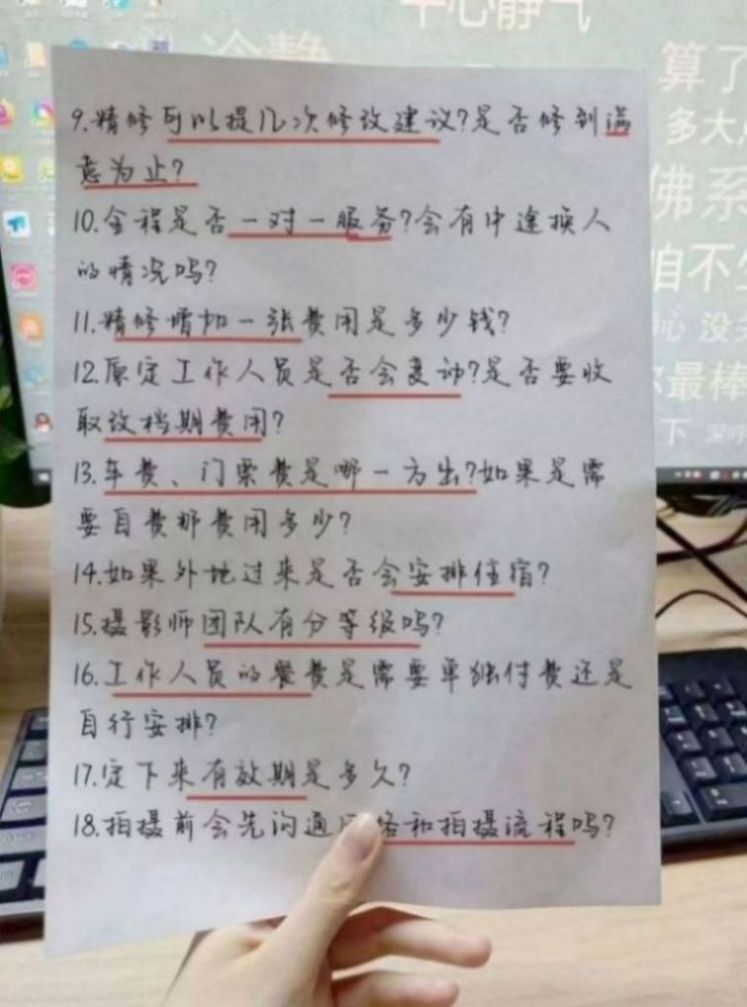 平心静气
冷静
算了
多大
佛系
咱不
没
最棒
下
9.精修可以提几次修改建议?是否修到满
意为止?
10.全程是否一对一服务?会有中途换人
的情况吗?
11.精修增加一张费用是多少钱?
12.原定工作人员是否会变动?是否要收
取改档期费用?
13.车费、门票费是哪一方出?如果是需
要自费那费用多少?
14.如果外地过来是否会安排住宿?
15.摄影师团队有分等级吗?
16.工作人员的餐费是需要单独付费还是
自行安排?
17.定下来有效期是多久?
18.拍摄前会先沟通 和拍摄流程吗?